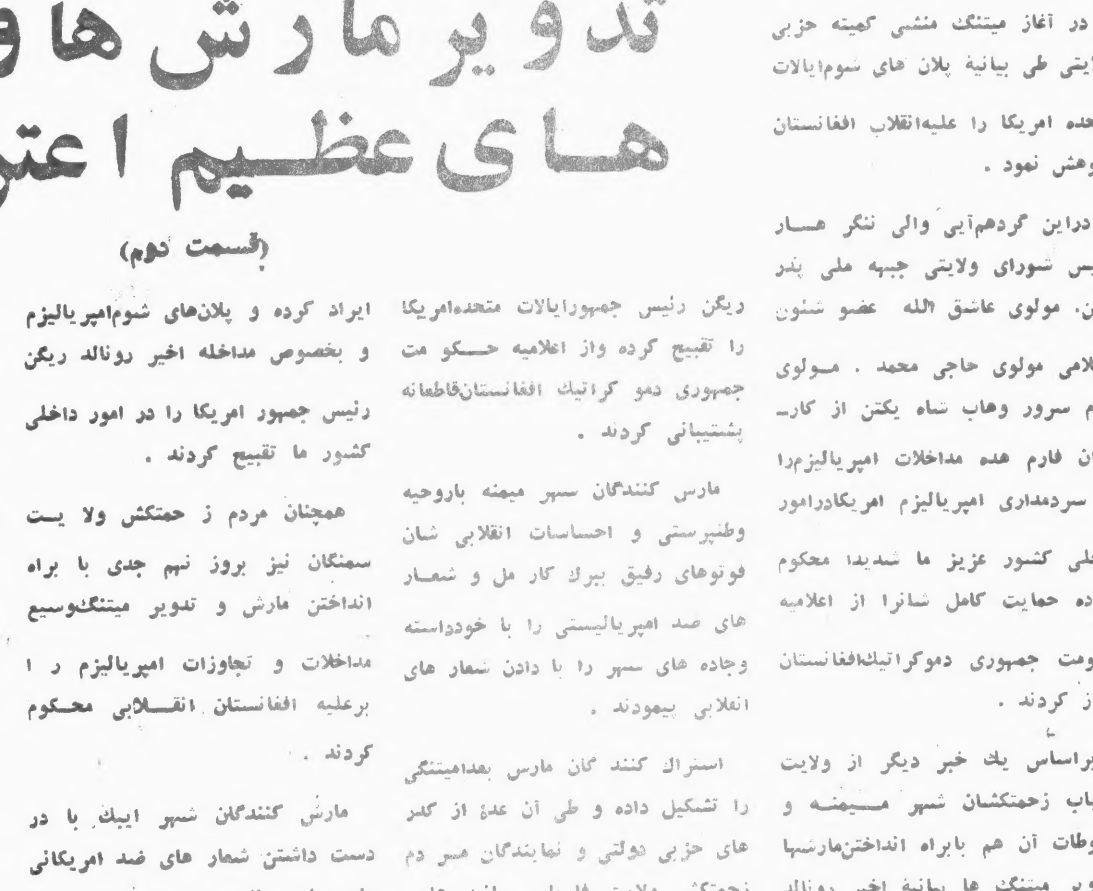 تدویر مارش ها و
هــا ی عظــیم اعتر
(قسمت دوم)
در آغاز میتنگ منشی کمیته حزبی
ایتی طی بیانیهٔ پلان های شوم ایالات
حده امریکا را علیه انقلاب افغانستان
وهش نمود .
دراین گردهم‌آیی والی ننگر هـــار
یس شورای ولایتی جبهه ملی پدر
ن. مولوی عاشق الله عضو شئون
لامی مولوی حاجی محمد . مــولوی
م سرور وهاب شاه یکتن از کارــ
ان فارم هده مداخلات امپریالیزم‌را
سردمداری امپریالیزم امریکادرامور
خلی کشور عزیز ما شدیدا محکوم
ده حمایت کامل شانرا از اعلامیه
ومت جمهوری دموکراتیك‌افغانستان
از کردند .
براساس یك خبر دیگر از ولایت
یاب زحمتکشان شهر مـــیمنــه و
وطات آن هم بابراه انداختن‌مارشها
ویر میتنگ ها بیانیهٔ اخیر رونالد
ریگن رئیس جمهورایالات متحده‌امریکا
را تقبیح کرده واز اعلامیه حـــکو مت
جمهوری دمو کراتیك افغانستان‌قاطعانه
پشتیبانی کردند .
مارس کنندگان سهر میمنه باروحیه
وطنپرستی و احساسات انقلابی شان
فوتوهای رفیق ببرك کار مل و شعــار
های ضد امپریالیستی را با خودداسته
وجاده های سهر را با دادن شعار های
انقلابی پیمودند .
استراك کنند گان مارس بعدامیتنگی
را تشکیل داده و طی آن عدهٔ از کدر
های حزبی دولتی و نمایندگان مر دم
زحمتکش ولایت
ایراد کرده و پلان‌های شوم‌امپریالیزم
و بخصوص مداخله اخیر رونالد ریگن
رئیس جمهور امریکا را در امور داخلی
کشور ما تقبیح کردند .
همچنان مردم ز حمتکش ولا یــت
سمنگان نیز بروز نهم جدی با براه
انداختن مارش و تدویر میتنگ‌وسیع
مداخلات و تجاوزات امپریالیزم ر ا
برعلیه افغانستان انقــــلابی محــکوم
کردند .
مارش کنندگان شهر ایبك با در
دست داشتن شعار های ضد امریکائی